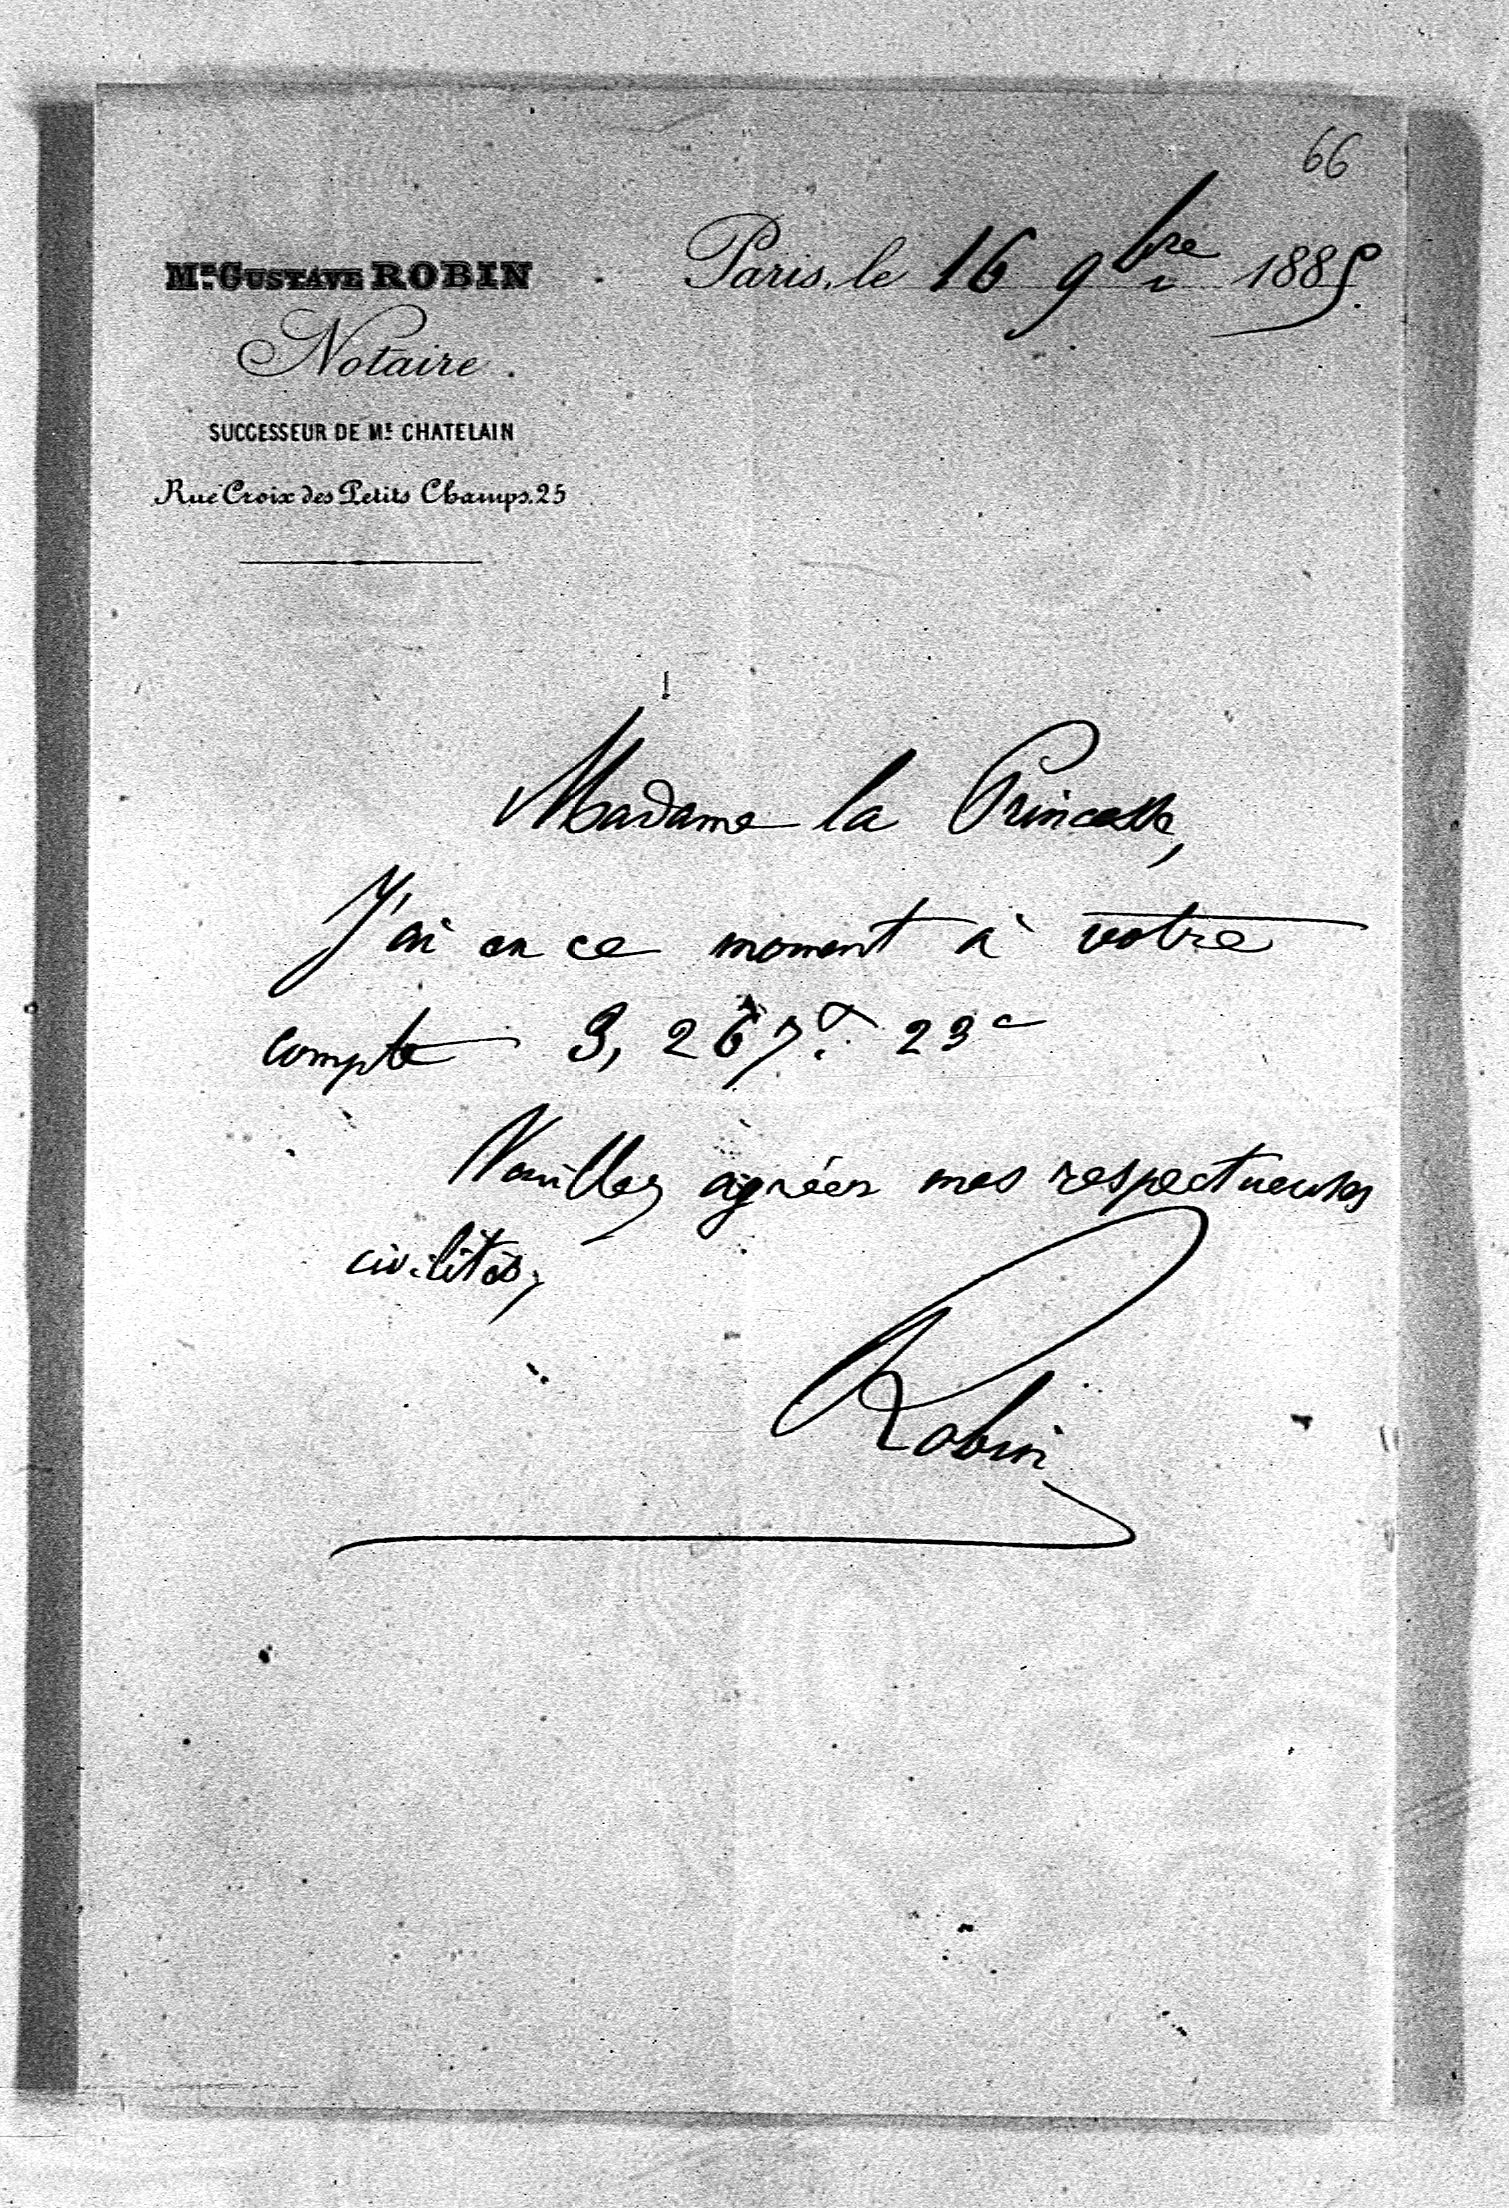 66
Mᵉ GUSTAVE ROBIN
Paris, le 16 9bre 1885.
Notaire.
SUCCESSEUR DE Mᵉ CHATELAIN
Rue Croix des Petits Champs. 25
Madame la Princesse,
J'ai en ce moment à votre
compte 3,267f. 23c
Veuillez agréer mes respectueuses
civilités,
Robin